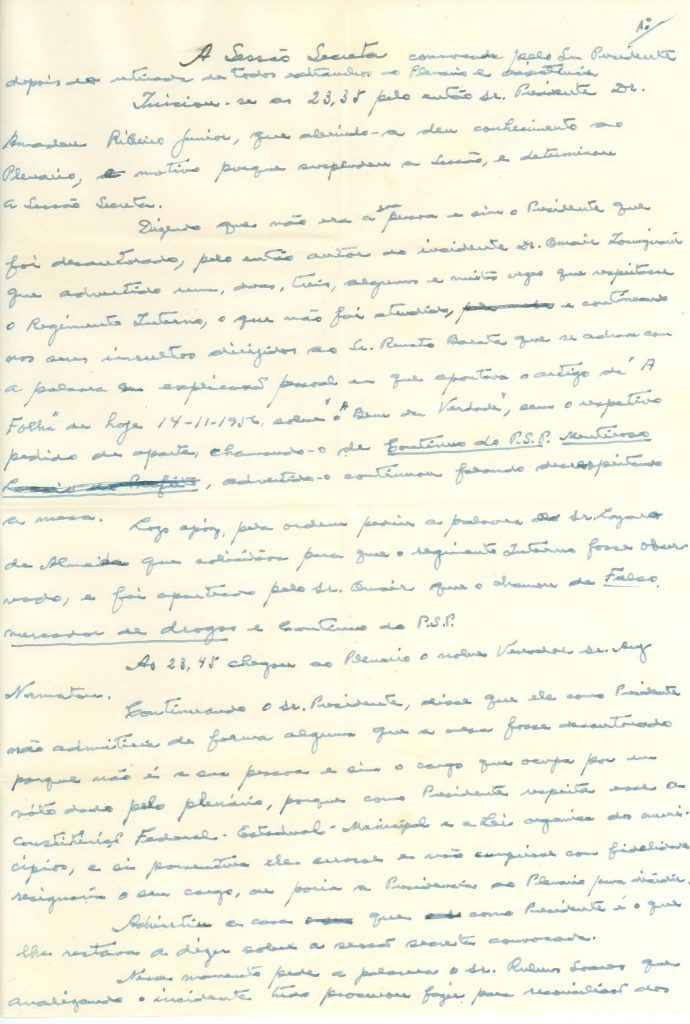 1º
A Sessão Secreta convocada pelo Snr Presidente
depois da retirada de todos extranhos ao Plenario e assistencia
Iniciou-se as 23,35 pelo então Sr. Presidente Dr.
Amadeu Ribeiro Junior, que abrindo-a deu conhecimento ao
Plenario, o motivo porque suspendeu a Sessão, e determinou
a Sessão Secreta.
Dizendo que não era a sua pessoa e sim o Presidente que
foi desautorado, pelo então autor do incidente Dr. Omair
que advertido uma, duas, treis, algumas e muitas vezes que respeitasse
o Regimento Interno, o que não foi atendido, e continuando
nos seus insultos dirigidos ao Sr. Renato Barata que se achava com
a palavra em explicação pessoal em que aparteava o artigo da "A
Folha" de hoje 14-11-1956 sobre "A Bem da Verdade", sem o respetivo
pedido de aparte, chamando-o de Contínuo do P.S.P. Mentiroso
, advertido-o continuou falando desrespeitando
a mesa.
Logo apóz, pela ordem pediu a palavra Sr. Lazaro
de Almeida que solicitára para que o regimento Interno fosse obser-
vado, e foi aparteado pelo Sr. Omair que o chamou de Falso,
mercador de drogas e Contínuo do P.S.P.
As 23,45 chegou ao Plenario o nobre Vereador Sr.
Continuando o Sr. Presidente, disse que ele como Presidente
não admitiria de forma alguma que a mesa fosse desautorada
porque não é a sua pessoa e sim o cargo que ocupa por um
vóto dado pelo plenário, porque como Presidente respeita esse a
constituição Federal - Estadual - Municipal e a Lei organica dos muni-
cipios, e si porventura ele errasse e não cumprisse com fidelidade
resignaria o seu cargo, ou poria a Presidencia ao Plenario para decidir.
Advertiu a casa que como Presidente é o que
lhe restava a dizer sobre a sessão secreta convocada.
Nesse momento pede a palavra o Sr. Rubens Soares que
analizando o incidente, tudo procurou fazer para reconciliação dos